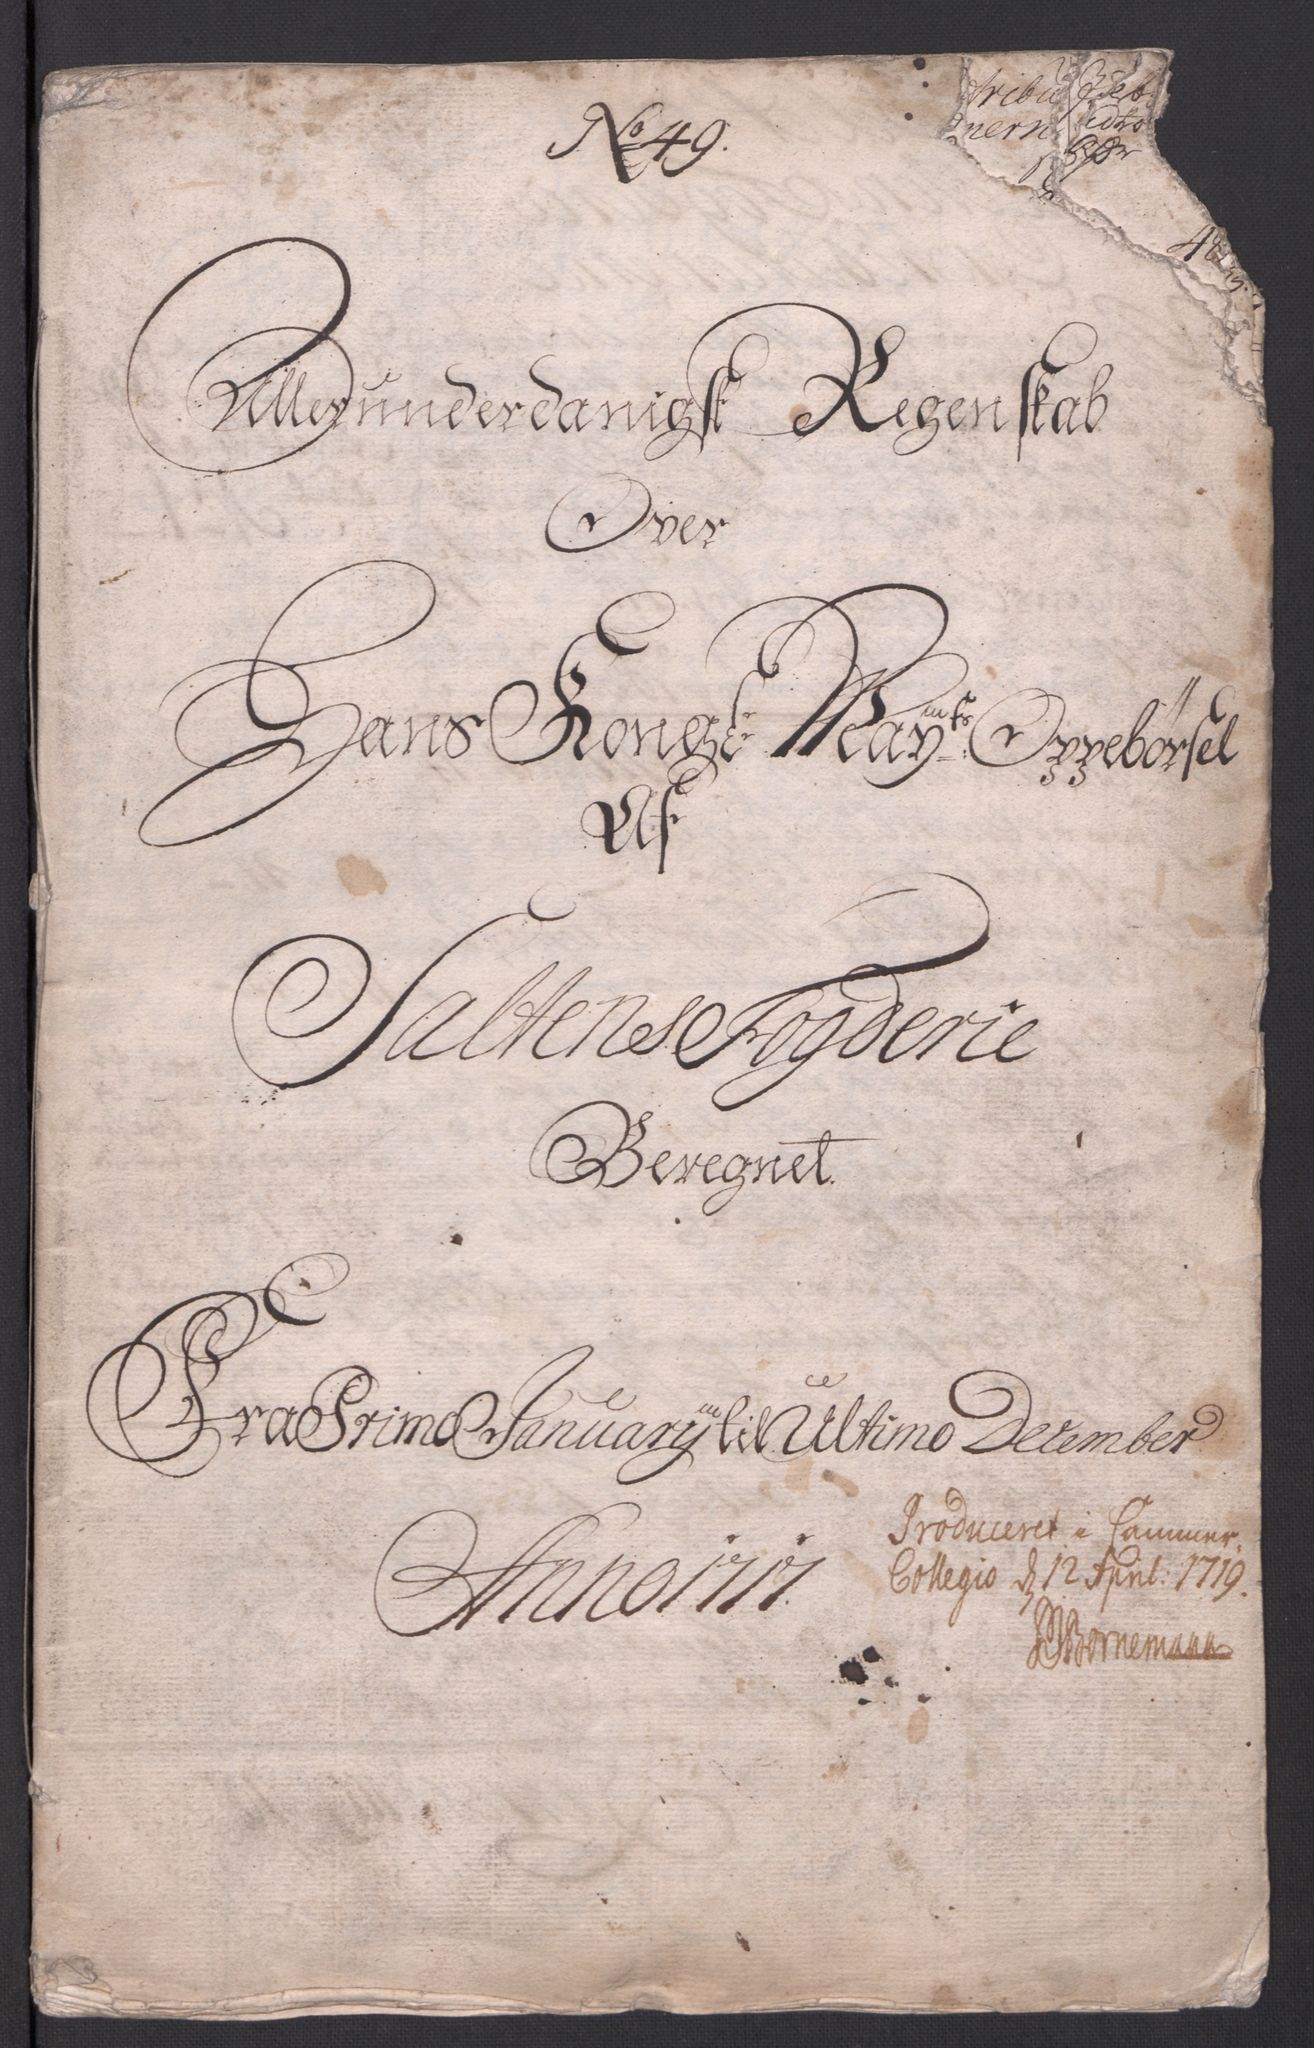 No 49.
Allerunderdanigst Regenskab
Over
Hans Kongl: Mayts: Oppebörsel
Af
Saltens Fogderie
Beregnet.
Fra Primo January til Ultimo December
Anno 1717.
Produceret i Cammer
Collegio d 12 April: 1719.
Bornemann